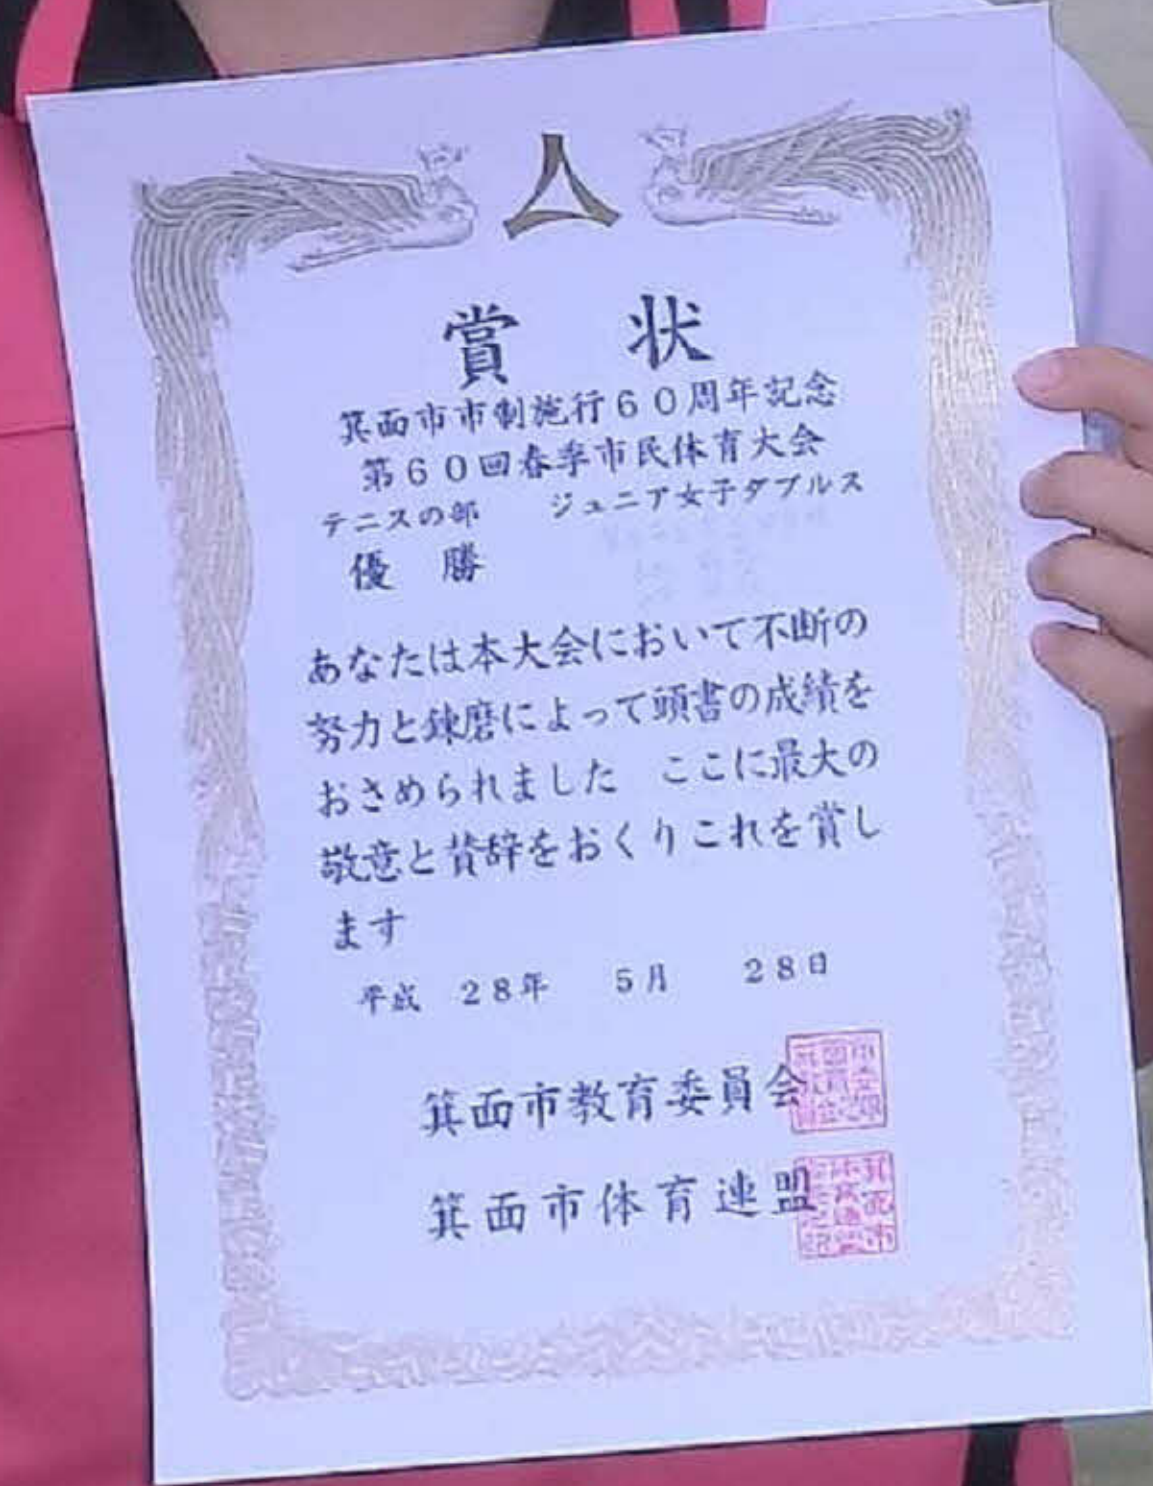 賞状
箕面市市制施行60周年記念
第60回春季市民体育大会
テニスの部 ジュニア女子ダブルス
優勝
あなたは本大会において不断の
努力と錬磨によって頭書の成績を
おさめられました ここに最大の
敬意と賛辞をおくりこれを賞し
ます
平成 28年 5月 28日
箕面市教育委員会
箕面市体育連盟